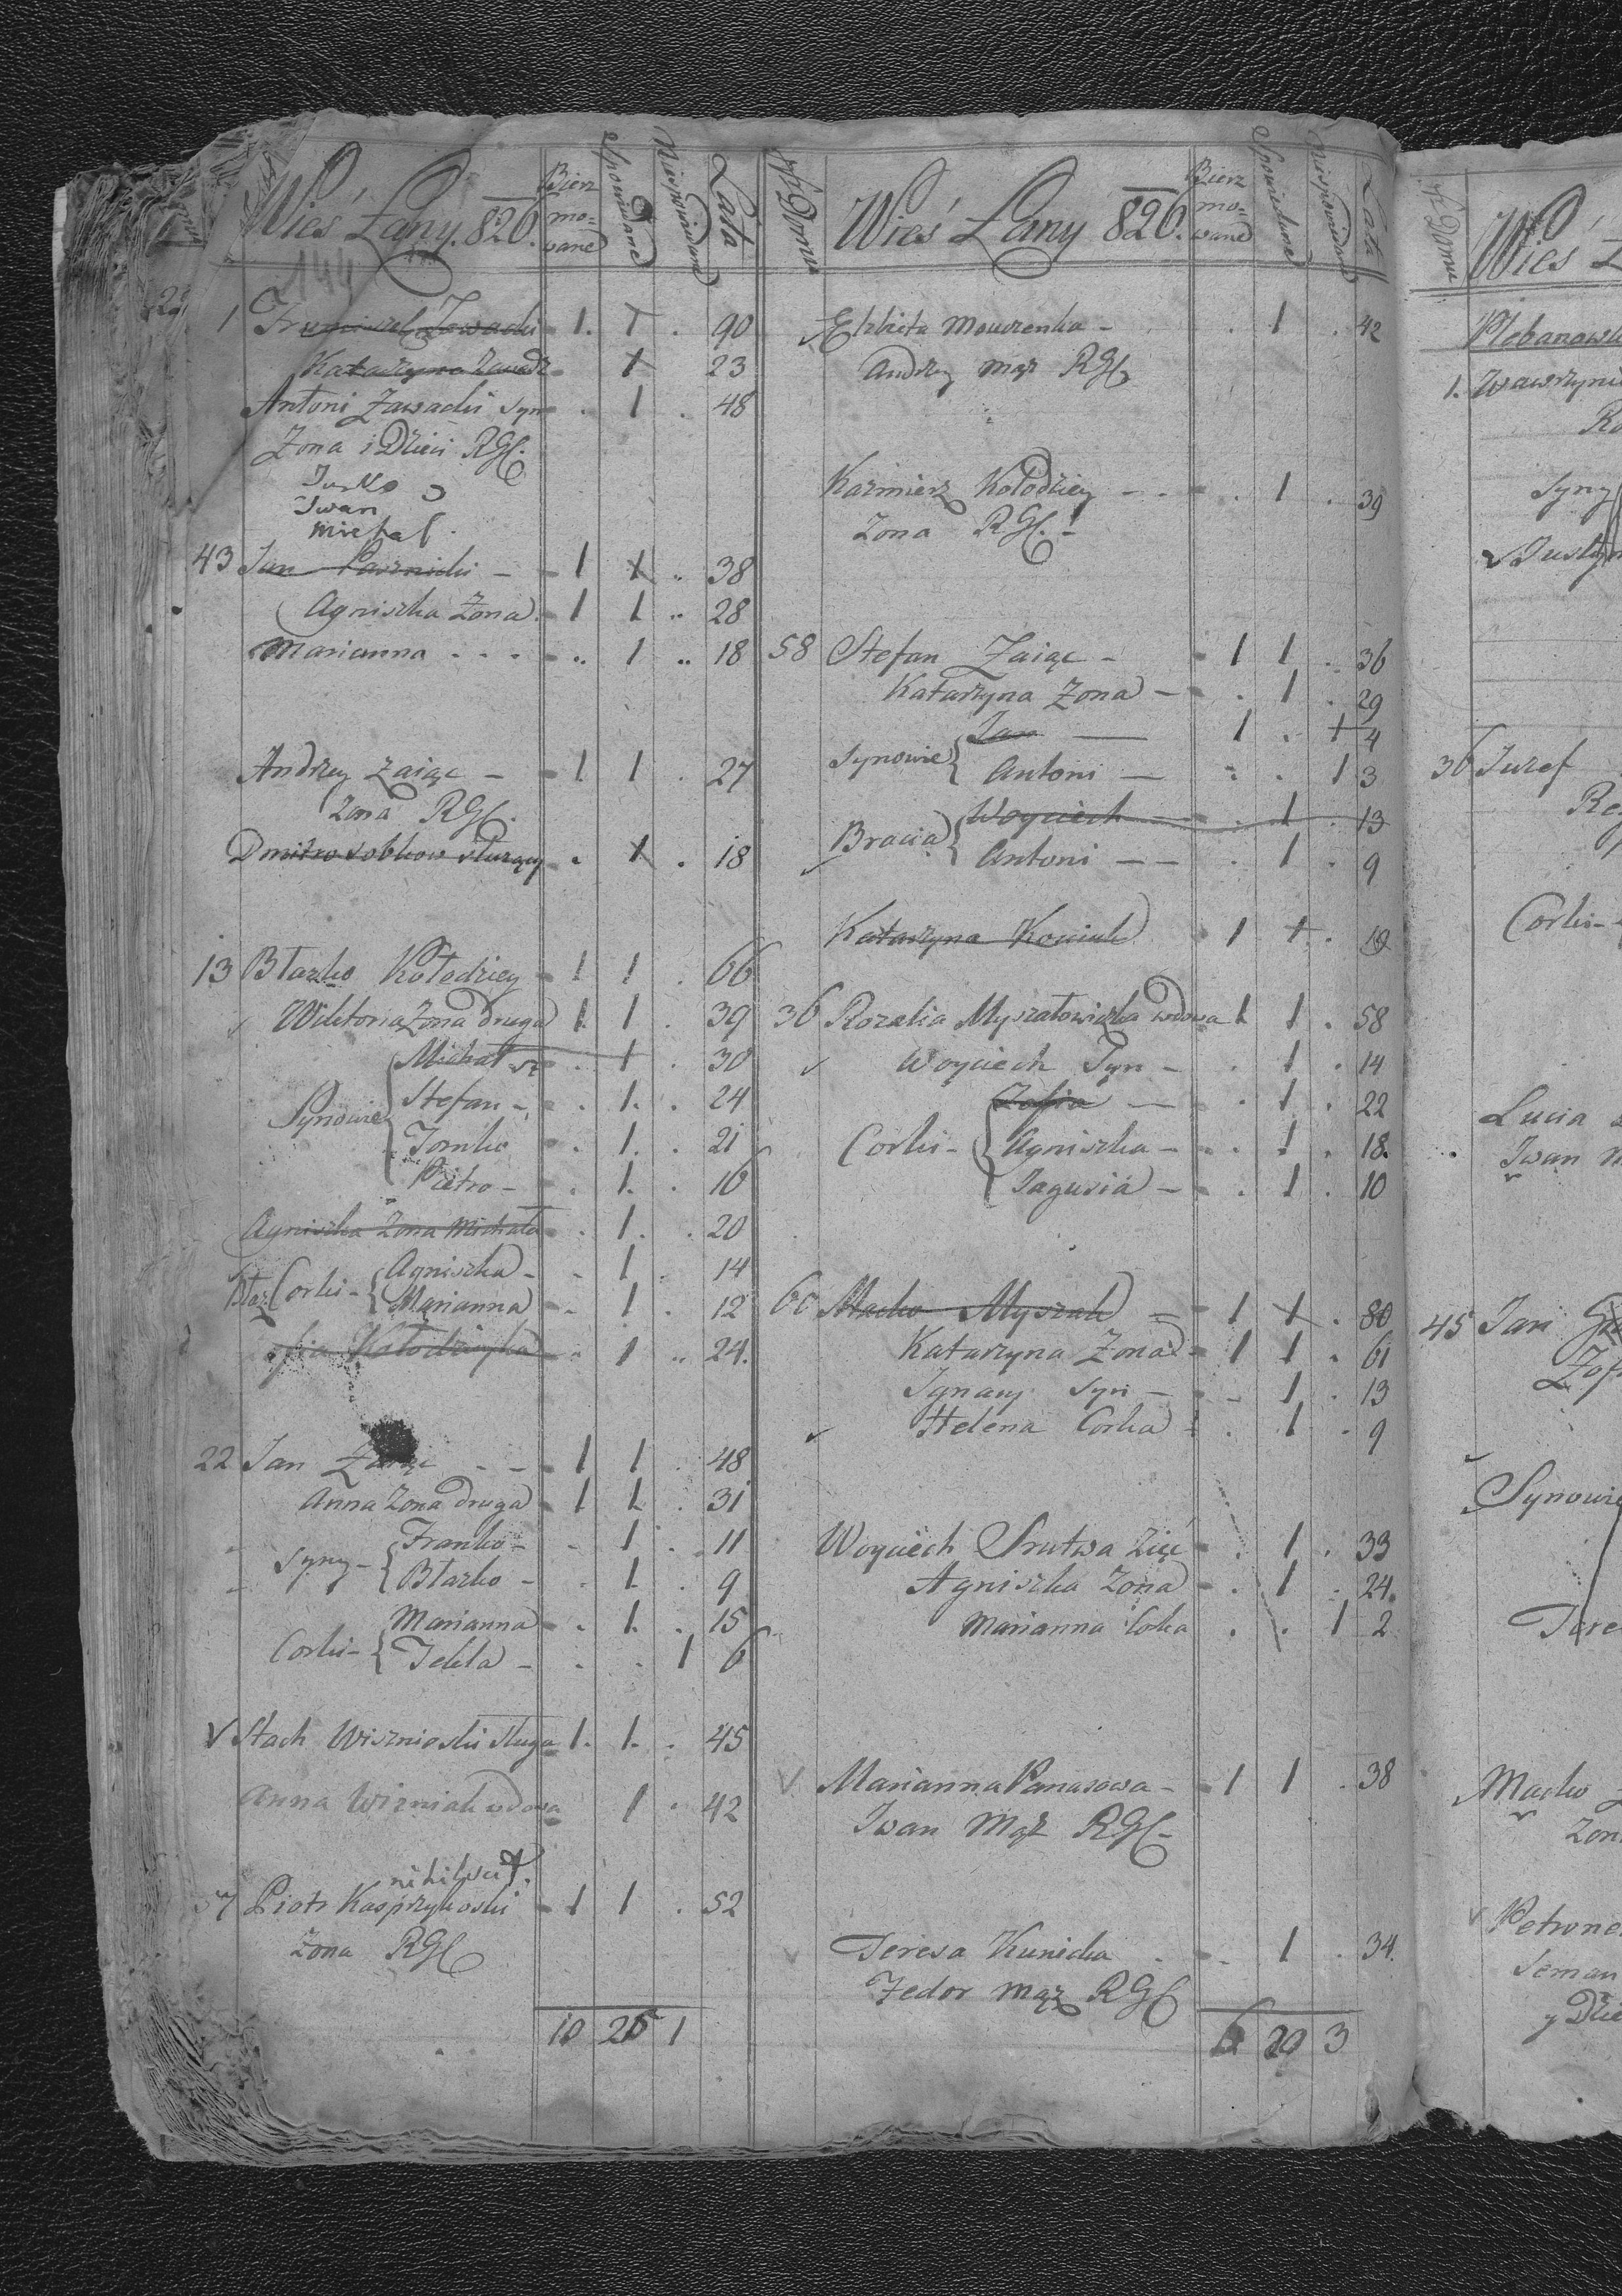 Wieś Łany. 826.
Bierz mo= wane
Spowiadane
Niespowiadane
Lata
144
1 Zawacki - 1. 1 . 90
Katarzyna Zawadz 1 23
Antoni Zawacki syn . 1 . 48
Zona i Dzieci RGC.
Iwan
Michał.
43 Jan - 1 1 .. 38
Agniszka Zona. 1 1 .. 28
Marianna - - - - .. 1 .. 18
Andrzey Zaiąc - 1 1 . 27
Zona RGC.
Dmitro Sobkow służący . 1 . 18
13 Błazko Kołodziey - 1 1 . 66
Wiktoria Zona druga 1. 1 . 39
Synowie
Michał . 1 . 30
Stefan - . 1. . 24
Tomko . 1. . 21
Pietro - . 1. . 16
Agniszka Zona Michała . 1. . 20
Corki -
Agniszka - - 1 . 14
Marianna - 1. . 12
Kołodzieyka . 1 .. 24.
22 Jan Zaiąc - - 1 1 . 48
Anna Zona druga 1 1. . 31
Syny -
Franko - - 1 . 11
Błazko - . 1. . 9
Corki -
Marianna . 1. . 15
Tekla - . . 1 6
Stach Wisznioski sługa 1. 1. . 45
Anna Wizniak wdowa 1 . 42
Piotr Kasprzykoski - 1 1 . 52
Zona RGC
10 25 1
N Domu
Wieś Łany 826.
Bierz mo= wane
Spowiadane
Niespowiadane
Lata
Elzbieta - . 1 . 42
Andrzy mąz RGC
Kazmierz Kołodziey - - . 1 . 39
Zona RGC. 1
58 Stefan Zaiąc - 1 1 . 36
Katarzyna Zona - . 1 . 29
Synowie
Jan — 1 . 1 4
Antoni — : . 1 3
Bracia
Woyciech — . 1 . 13
Antoni — — . 1 . 9
Katarzyna 1 1 . 19
36 Rozalia wdowa 1 1 . 58
Woyciech Syn - . 1 . 14
Corki -
Zofia — . 1 . 22
Agniszka - . 1 . 18.
Jagusia - . 1 . 10
60 Macko Myszak - 1 1 . 80
Katarzyna Zona - 1 1 . 61
Ignacy Syn - - 1 . 13
Helena Corka . 1 . 9
Woyciech Srutwa Zięć . 1 . 33
Agniszka Zona . 1 . 24.
Marianna Corka . . 1 2
Marianna Panasowa - - 1 1 . 38
Iwan Mąz RGC -
Teresa Kunicka . - 1 . 34.
Fedor mąz RGC
6 20 3
N Domu
Wieś
1. Wawrzyni
Syny
36 Jozef
Corki -
Lucia
Iwan
45 Jan
Synowie
Macko
Zon
Petrone
Seman